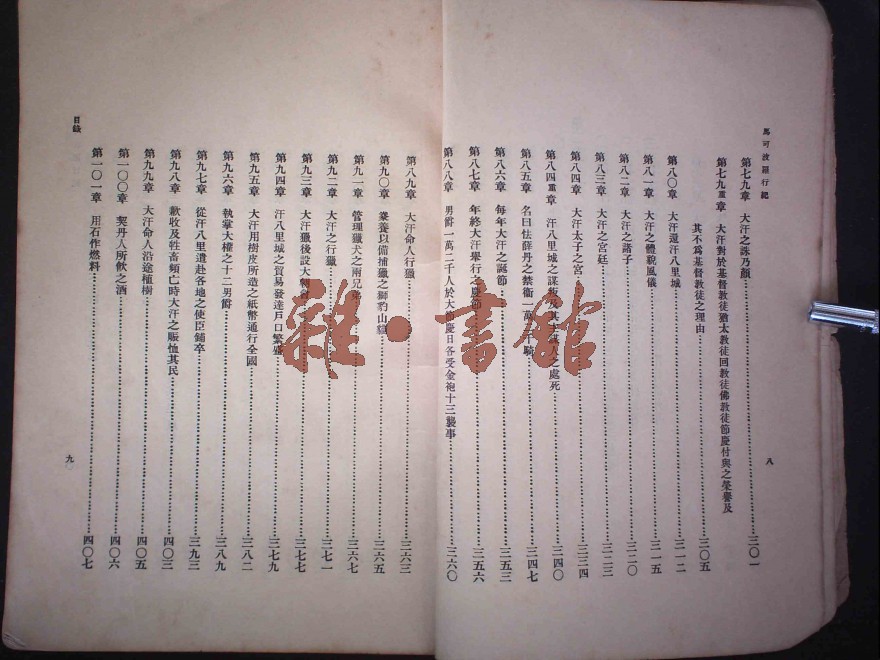 馬可波羅行紀
八
第七九章 大汗之誅乃顏……三〇一
第七九重章 大汗對於基督教徒猶太教徒回教徒佛教徒節慶付與之榮譽及
其不為基督教徒之理由……三〇五
第八〇章 大汗還汗八里城……三一二
第八一章 大汗之體貌風儀……三一五
第八二章 大汗之諸子……三二〇
第八三章 大汗之宮廷……三二三
第八四章 大汗太子之宮……三三四
第八四重章 汗八里城之謀叛及其主謀人之處死……三四〇
第八五章 名曰怯薛丹之禁衞一萬二千騎……三四七
第八六章 每年大汗之誕節……三五三
第八七章 年終大汗舉行之慶節……三五六
第八八章 男爵一萬二千人於大節慶日各受金袍十三襲事……三六〇
第八九章 大汗命人行獵……三六三
第九〇章 豢養以備捕獵之獅豹山貓……三六五
第九一章 管理獵犬之兩兄弟……三六七
第九二章 大汗之行獵……三七一
第九三章 大汗獵後設大朝會……三七七
第九四章 汗八里城之貿易發達戶口繁盛……三七九
第九五章 大汗用樹皮所造之紙幣通行全國……三八二
第九六章 執掌大權之十二男爵……三八九
第九七章 從汗八里遣赴各地之使臣鋪卒……三九三
第九八章 歉收及牲畜頻亡時大汗之賑恤其民……四〇三
第九九章 大汗命人沿途植樹……四〇五
第一〇〇章 契丹人所飲之酒……四〇六
第一〇一章 用石作燃料……四〇七
目錄
九
雜·書館